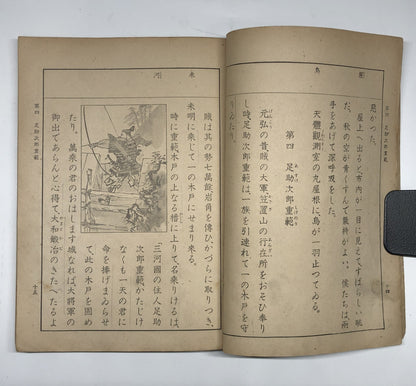 眺 鳥
第四 足助次郎重範
十四
屋上へ出ると市内が一目に見えてすばらしい眺
だ。秋の空が青くすんで氣持がよい。僕たちは兩
手をあげて深呼吸をした。
天體觀測室の丸屋根に、鳥が一羽止つてゐる。
第四 足助次郎重範
元弘の昔賊の大軍笠置山の行在所をおそひ奉り
し時、足助次郎重範は、一族を引連れて一の木戸を守
りゐたり。
未 河
賊は其の勢七萬餘岩角を傳ひ、かづらに取りつき、
未明に來つて一の木戸にせまり來る。
時に重範、木戸の上なる櫓に上りて、名乘りけるは、
三河國の住人足助
次郎重範、かたじけ
なくも一天の君に
命を捧げまゐらせ
て、此の木戸を固め
たり。萬乘の君のおはします城なれば、大將軍の
御出であらんと心得て、大和鍛冶のきたへたるよ
第四 足助次郎重範
十五